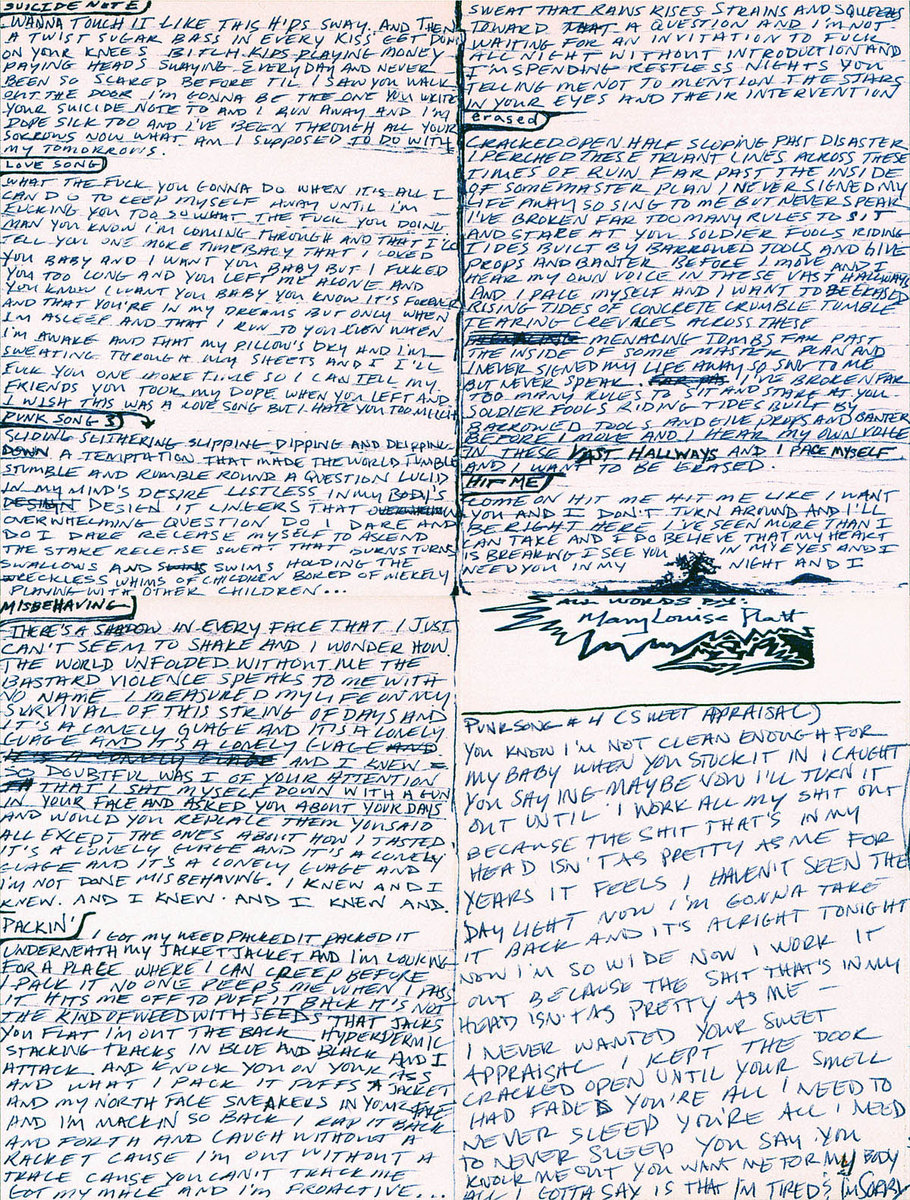 SUICIDE NOTE
WANNA TOUCH IT LIKE THIS HIPS SWAY. AND THEN
A TWIST SUGAR BASS IN EVERY KISS GET DOWN
ON YOUR KNEES BITCH KIDS PLAYING MONEY
PAYING HEADS SWAYING EVERYDAY AND NEVER
BEEN SO SCARED BEFORE TIL I SAW YOU WALK
OUT THE DOOR I'M GONNA BE THE ONE YOU WRITE
YOUR SUICIDE NOTE TO AND I RUN AWAY AND I'M
DOPE SILK TOO AND I'VE BEEN THROUGH ALL YOUR
SORROWS NOW WHAT AM I SUPPOSED TO DO WITH
MY TOMORROWS.
LOVE SONG
WHAT THE FUCK YOU GONNA DO WHEN IT'S ALL I
CAN DO TO KEEP MYSELF AWAY UNTIL I'M
FUCKING YOU TOO SO WHAT THE FUCK YOU DOING
MAN YOU KNOW I'M COMING THROUGH AND THAT I'LL
TELL YOU ONE MORE TIME BABY THAT I LOVED
YOU BABY AND I WANT YOU BABY BUT I FUCKED
YOU TOO LONG AND YOU LEFT ME ALONE AND
YOU KNOW I WANT YOU BABY YOU KNOW IT'S FOREVER
AND THAT YOU'RE IN MY DREAMS BUT ONLY WHEN
I'M ASLEEP AND THAT I RUN TO YOU EVEN WHEN
I'M AWAKE AND THAT MY PILLOW'S DRY AND I'M
SWEATING THROUGH MY SHEETS AND I I'LL
FUCK YOU ONE MORE TIME SO I CAN TELL MY
FRIENDS YOU TOOK MY DOPE WHEN YOU LEFT AND
I WISH THIS WAS A LOVE SONG BUT I HATE YOU TOO MUCH
PUNK SONG 3
SLIDING SLITHERING SLIPPING DIPPING AND DRIPPING
DOWN A TEMPTATION THAT MADE THE WORLD TUMBLE
STUMBLE AND RUMBLE ROUND A QUESTION LUCID
IN MY MIND'S DESIRE LISTLESS IN MY BODY'S
DESIGN DESIGN IT LINGERS THAT
OVERWHELMING QUESTION DO I DARE AND
DO I DARE RELEASE MYSELF TO ASCEND
THE STAKE RELEASE SWEAT THAT BURNS TURNS
SWALLOWS AND SWIMS HOLDING THE
RECKLESS WHIMS OF CHILDREN BORED OF MERELY
PLAYING WITH OTHER CHILDREN...
MISBEHAVING
THERE'S A SHADOW IN EVERY FACE THAT I JUST
CAN'T SEEM TO SHAKE AND I WONDER HOW
THE WORLD UNFOLDED WITHOUT ME THE
BASTARD VIOLENCE SPEAKS TO ME WITH
NO NAME I MEASURED MY LIFE ON MY
SURVIVAL OF THIS STRING OF DAYS AND
IT'S A LONELY GUAGE AND IT'S A LONELY
GUAGE AND IT'S A LONELY GUAGE AND
IT'S A LONELY GUAGE AND I KNEW
SO DOUBTFUL WAS I OF YOUR ATTENTION
THAT I SAT MYSELF DOWN WITH A GUN
IN YOUR FACE AND ASKED YOU ABOUT YOUR DAYS
AND WOULD YOU REPLACE THEM YOU SAID
ALL EXCEPT THE ONES ABOUT HOW I TASTED.
IT'S A LONELY GUAGE AND IT'S A LONELY
GUAGE AND IT'S A LONELY GUAGE AND
I'M NOT DONE MISBEHAVING. I KNEW AND I
KNEW. AND I KNEW. AND I KNEW AND.
PACKIN'
I GOT MY WEED PACKED IT PACKED IT
UNDERNEATH MY JACKET JACKET AND I'M LOOKING
FOR A PLACE WHERE I CAN CREEP BEFORE
I PACK IT NO ONE PEEPS ME WHEN I PASS
IT HITS ME OFF TO PUFF IT BACK IT'S NOT
THE KIND OF WEED WITH SEEDS THAT JACKS
YOU FLAT I'M OUT THE BACK HYPERDERMIC
STACKING TRACKS IN BLUE AND BLACK AND I
ATTACK AND KNOCK YOU ON YOUR ASS
AND WHAT I PACK IT PUFFS A JACKET
AND MY NORTH FACE SNEAKERS IN YOUR FACE
AND I'M MACKIN SO BACK I RAP IT BACK
AND FORTH AND LAUGH WITHOUT A
RACKET CAUSE I'M OUT WITHOUT A
TRACE CAUSE YOU CAN'T TRACK ME
GOT MY MACE AND I'M PROACTIVE...
SWEAT THAT RAINS RISES STRAINS AND SQUEEZES
TOWARD THAT A QUESTION AND I'M NOT
WAITING FOR AN INVITATION TO FUCK
ALL NIGHT WITHOUT INTRODUCTION AND
I'M SPENDING RESTLESS NIGHTS YOU
TELLING ME NOT TO MENTION THE STARS
IN YOUR EYES AND THEIR INTERVENTION
erased
CRACKED OPEN HALF SLOPING PAST DISASTER
I PERCHED THESE TRUANT LINES ACROSS THESE
TIMES OF RUIN FAR PAST THE INSIDE
OF SOME MASTER PLAN I NEVER SIGNED MY
LIFE AWAY SO SING TO ME BUT NEVER SPEAK
I'VE BROKEN FAR TOO MANY RULES TO SIT
AND STARE AT YOU SOLDIER FOOLS RIDING
TIDES BUILT BY BARROWED TOOLS AND GIVE
PROPS AND BANTER BEFORE I MOVE AND I
HEAR MY OWN VOICE IN THESE VAST HALLWAYS
AND I PACE MYSELF AND I WANT TO BE ERASED
RISING TIDES OF CONCRETE CRUMBLE TUMBLE
TEARING CREVALES ACROSS THESE
MENACING TOMBS FAR PAST
THE INSIDE OF SOME MASTER PLAN AND I
NEVER SIGNED MY LIFE AWAY SO SING TO ME
BUT NEVER SPEAK. I'VE BROKEN FAR
TOO MANY RULES TO SIT AND STARE AT YOU
SOLDIER FOOLS RIDING TIDES BUILT BY
BARROWED TOOLS AND GIVE PROPS AND BANTER
BEFORE I MOVE AND I HEAR MY OWN VOICE
IN THESE VAST HALLWAYS AND I PACE MYSELF
AND I WANT TO BE ERASED.
HIT ME
COME ON HIT ME HIT ME LIKE I WANT
YOU AND I DON'T TURN AROUND AND I'LL
BE RIGHT HERE I'VE SEEN MORE THAN I
CAN TAKE AND I DO BELIEVE THAT MY HEART
IS BREAKING I SEE YOU IN MY EYES AND I
NEED YOU IN MY NIGHT AND I
ALL WORDS BY:
Mary Louise Platt
PUNK SONG #4 (SWEET APPRAISAL)
YOU KNOW I'M NOT CLEAN ENOUGH FOR
MY BABY WHEN YOU STUCK IT IN I CAUGHT
YOU SAYING MAYBE NOW I'LL TURN IT
OUT UNTIL I WORK ALL MY SHIT OUT
BECAUSE THE SHIT THAT'S IN MY
HEAD ISN'T AS PRETTY AS ME FOR
YEARS IT FEELS I HAVEN'T SEEN THE
DAY LIGHT NOW I'M GONNA TAKE
IT BACK AND IT'S ALRIGHT TONIGHT
NOW I'M SO WIDE NOW I WORK IT
OUT BECAUSE THE SHIT THAT'S IN MY
HEAD ISN'T AS PRETTY AS ME –
I NEVER WANTED YOUR SWEET
APPRAISAL I KEPT THE DOOR
CRACKED OPEN UNTIL YOUR SMELL
HAD FADED YOU'RE ALL I NEED TO
NEVER SLEEP YOU'RE ALL I NEED
TO NEVER SLEEP YOU SAY YOU
KNOCK ME OUT YOU WANT ME FOR MY BODY
ALL I GOTTA SAY IS THAT I'M TIRED I'M SORRY